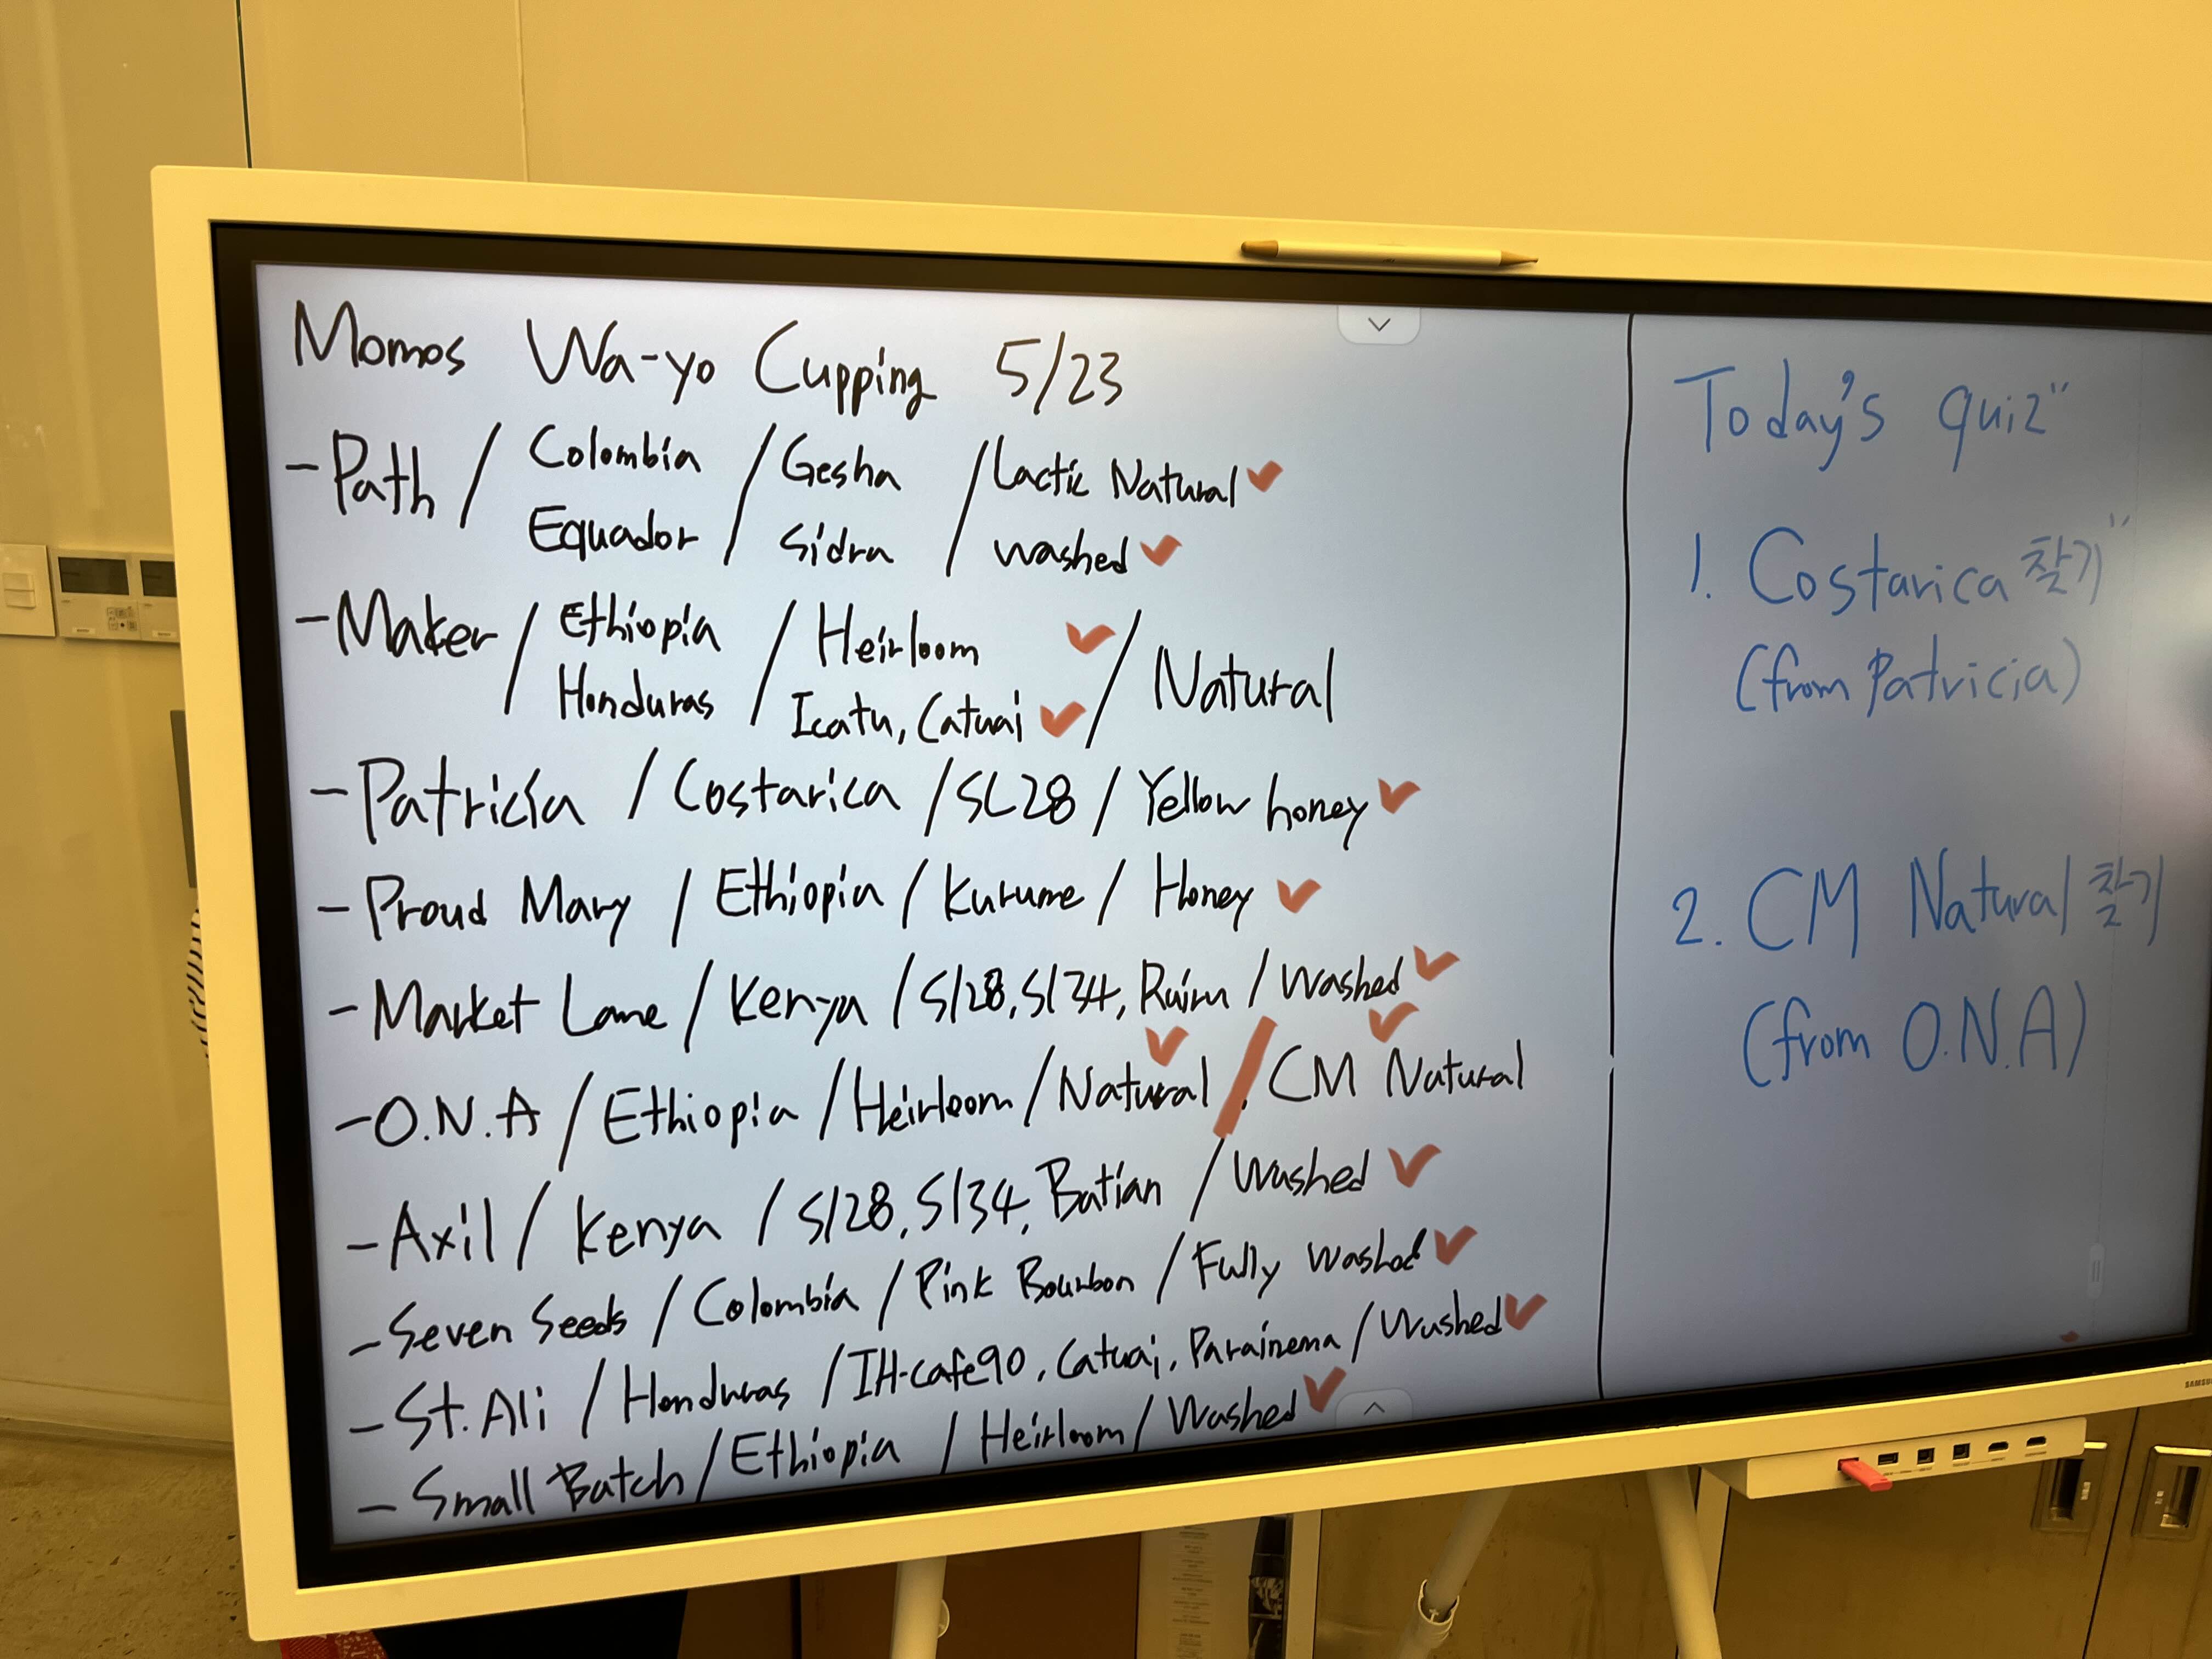 Momos Wa-yo Cupping 5/23
- Path / Colombia / Gesha / Lactic Natural ✓
Equador / Sidra / washed ✓
- Maker / Ethiopia / Heirloom ✓ / Natural
Honduras / Icatu, Catuai ✓
- Patricia / Costarica / SL28 / Yellow honey ✓
- Proud Mary / Ethiopia / Kurume / Honey ✓
- Market Lane / Kenya / Sl28, Sl34, Ruiru / Washed ✓
- O.N.A / Ethiopia / Heirloom / Natural ✓ / CM Natural ✓
- Axil / Kenya / Sl28, Sl34, Batian / Washed ✓
- Seven Seeds / Colombia / Pink Bourbon / Fully washed ✓
- St. Ali / Honduras / IH-cafe90, Catuai, Parainema / Washed ✓
- Small Batch / Ethiopia / Heirloom / Washed ✓
Today's quiz"
1. Costarica 찾기"
(from Patricia)
2. CM Natural 찾기
(from O.N.A)